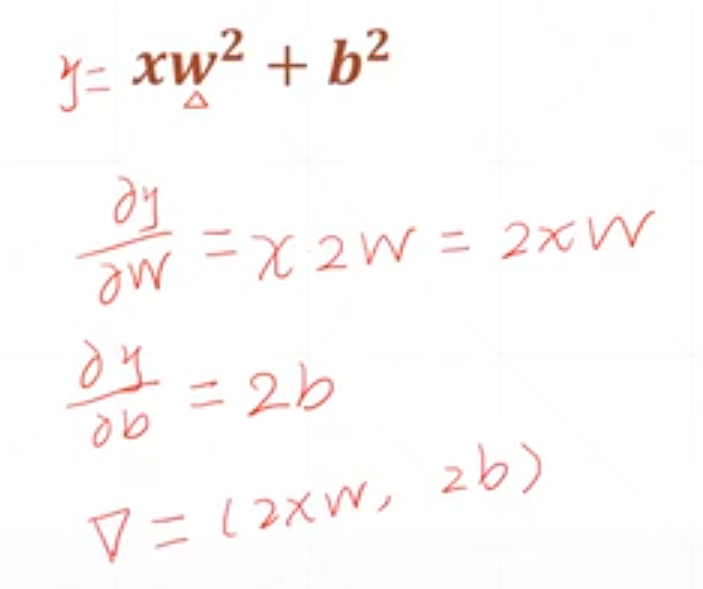 y = xw² + b²
∂y/∂w = x·2w = 2xw
∂y/∂b = 2b
∇ = (2xw, 2b)